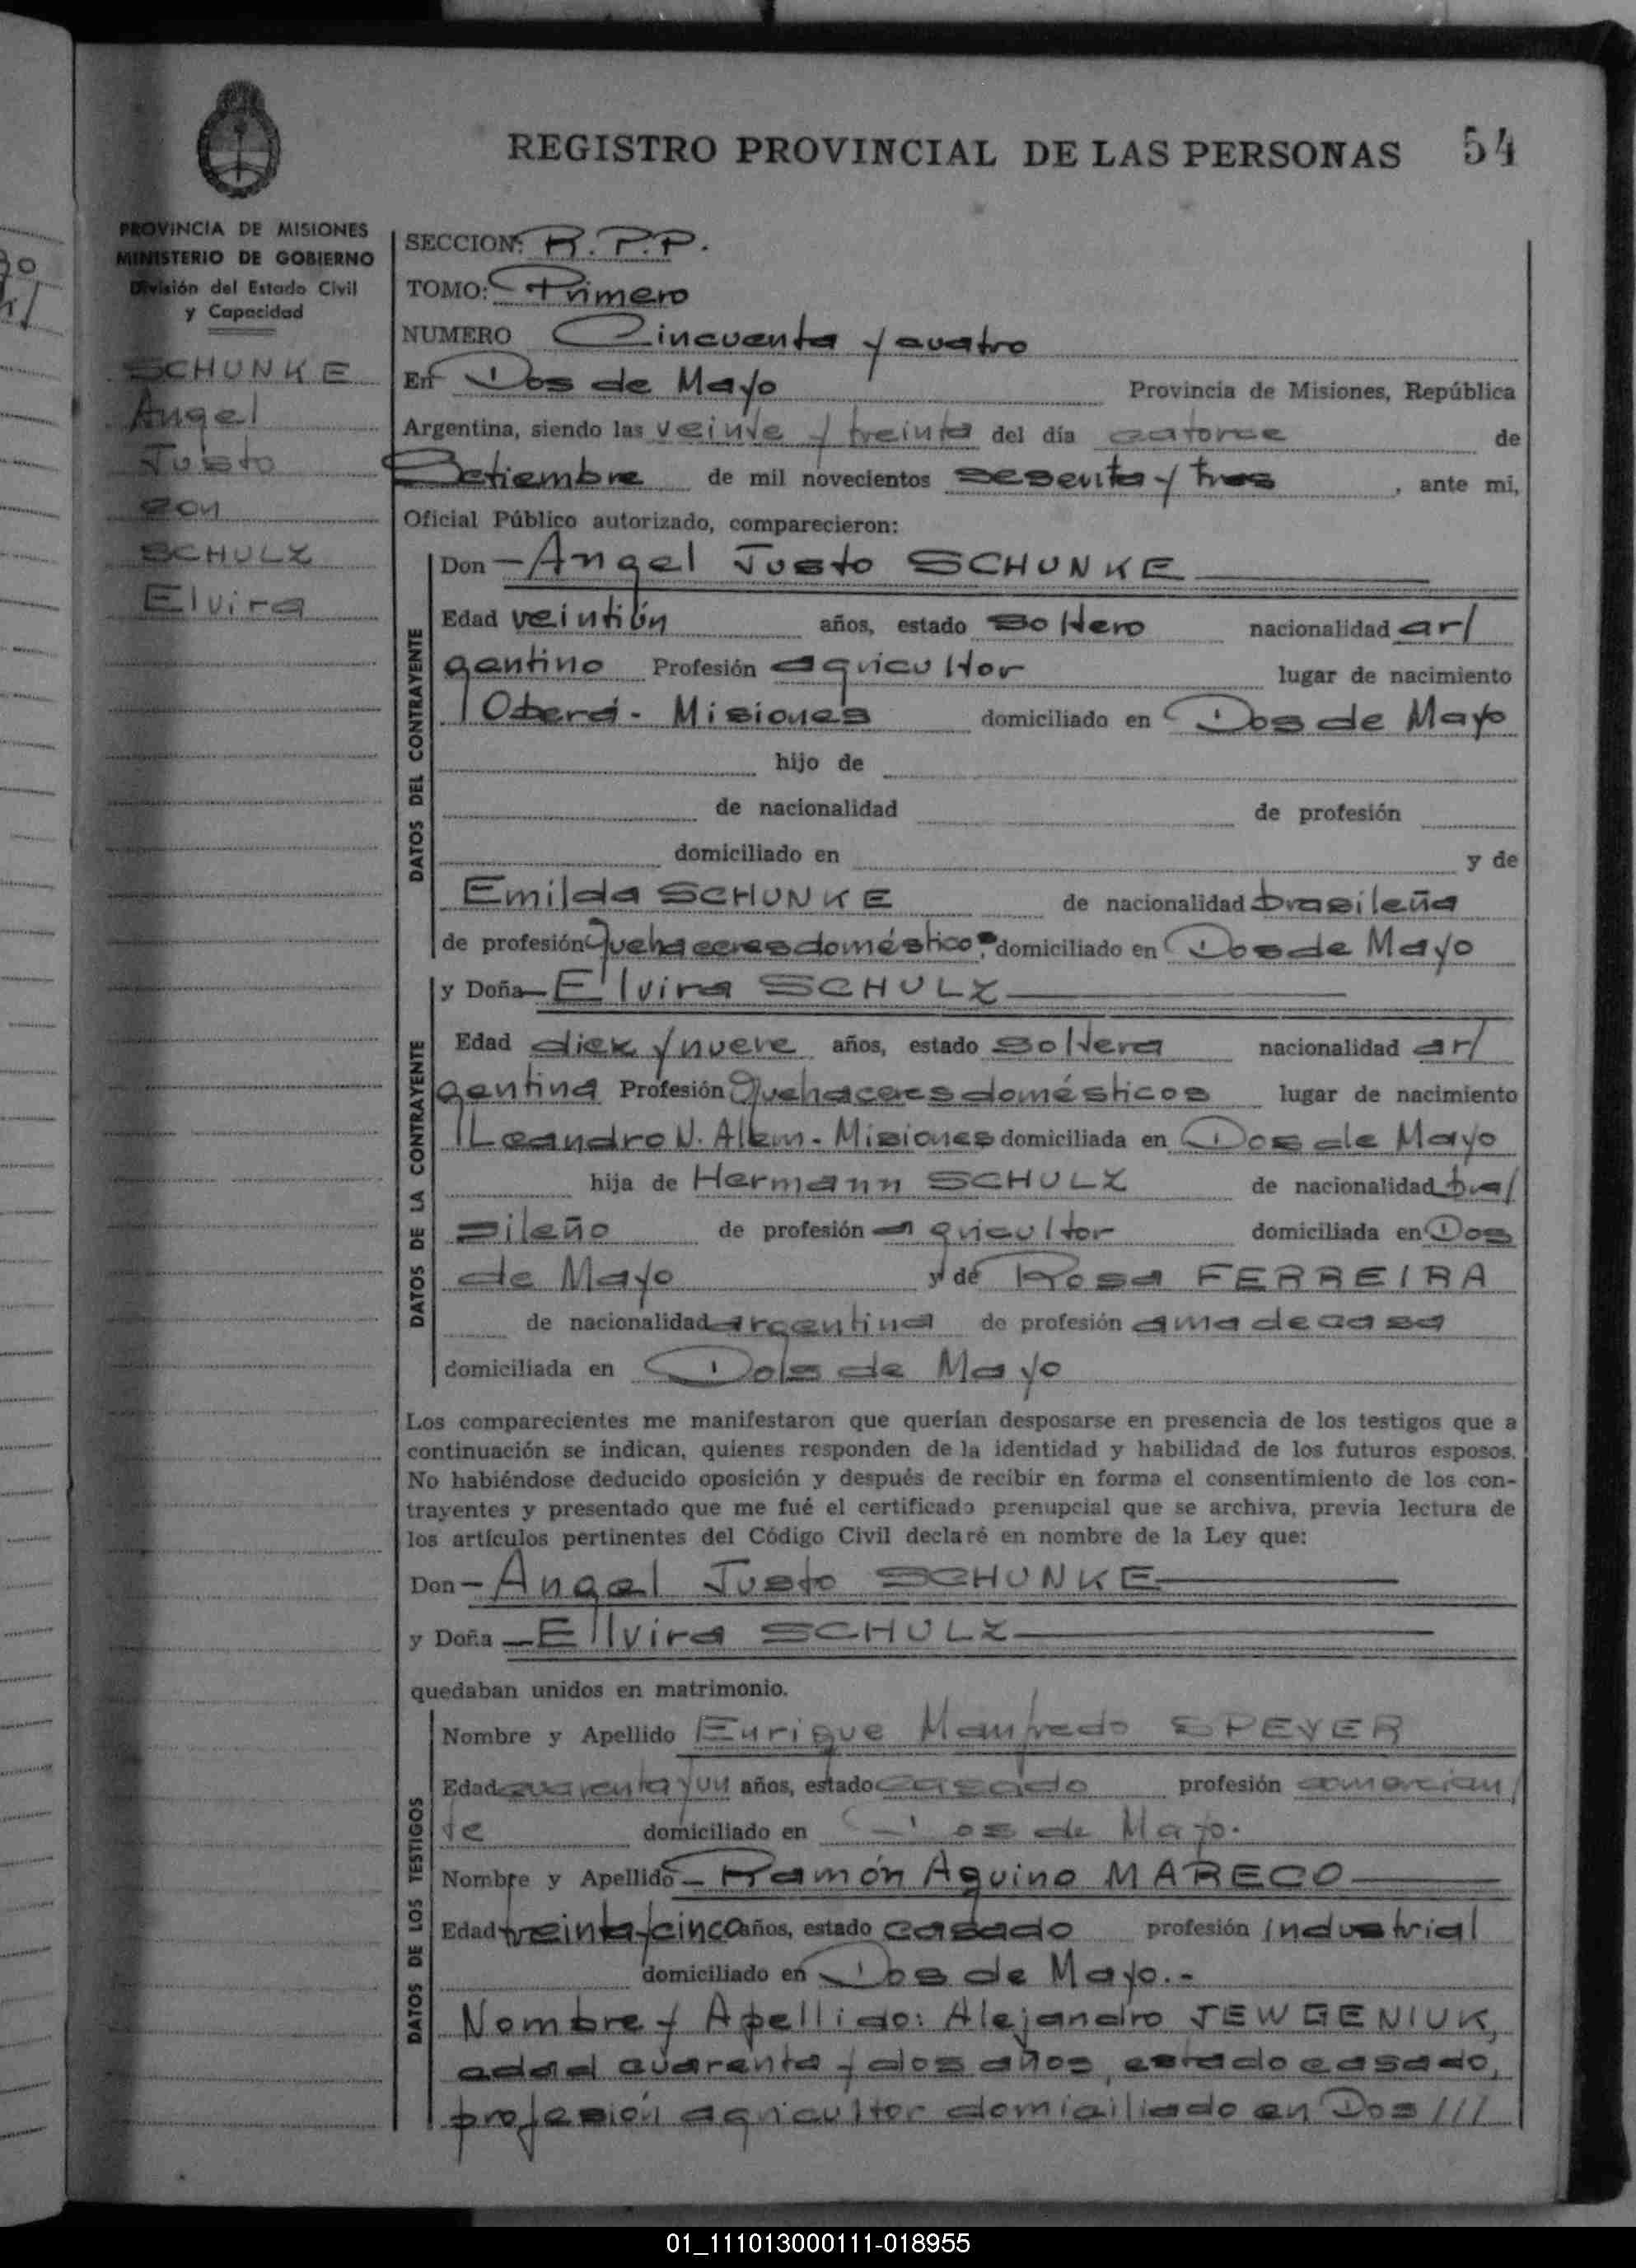 REGISTRO PROVINCIAL DE LAS PERSONAS 54
PROVINCIA DE MISIONES
MINISTERIO DE GOBIERNO
División del Estado Civil
y Capacidad
SCHUNKE
Angel
Justo
con
SCHULZ
Elvira
SECCION: R.P.P.
TOMO: Primero
NUMERO Cincuenta y cuatro
En Dos de Mayo Provincia de Misiones, República
Argentina, siendo las veinte y treinta del día catorce de
Setiembre de mil novecientos sesenta y tres, ante mi,
Oficial Público autorizado, comparecieron:
DATOS DEL CONTRAYENTE
Don - Angel Justo SCHUNKE
Edad veintiún años, estado soltero nacionalidad ar/
gentino Profesión agricultor lugar de nacimiento
Oberá - Misiones domiciliado en Dos de Mayo
hijo de
de nacionalidad de profesión
domiciliado en y de
Emilda SCHUNKE de nacionalidad brasileña
de profesión Quehaceres domésticos, domiciliado en Dos de Mayo
DATOS DE LA CONTRAYENTE
y Doña - Ellvira SCHULZ
Edad diez y nueve años, estado soltera nacionalidad ar/
gentina Profesión Quehaceres domésticos lugar de nacimiento
Leandro N. Alem - Misiones domiciliada en Dos de Mayo
hija de Hermann SCHULZ de nacionalidad bra/
sileño de profesión agricultor domiciliada en Dos
de Mayo y de Rosa FERREIRA
de nacionalidad argentina de profesión ama de casa
domiciliada en Dos de Mayo
Los comparecientes me manifestaron que querían desposarse en presencia de los testigos que a
continuación se indican, quienes responden de la identidad y habilidad de los futuros esposos.
No habiéndose deducido oposición y después de recibir en forma el consentimiento de los con-
trayentes y presentado que me fué el certificado prenupcial que se archiva, previa lectura de
los artículos pertinentes del Código Civil declaré en nombre de la Ley que:
Don - Angel Justo SCHUNKE
y Doña - Ellvira SCHULZ
quedaban unidos en matrimonio.
DATOS DE LOS TESTIGOS
Nombre y Apellido Enrique Manfredo SPEYER
Edad cuarenta y un años, estado casado profesión comercian/
te domiciliado en Dos de Mayo.
Nombre y Apellido - Ramón Aquino MARECO
Edad treinta y cinco años, estado casado profesión industrial
domiciliado en Dos de Mayo.-
Nombre y Apellido: Alejandro JEWGENIUK,
edad cuarenta y dos años, estado casado,
profesión agricultor domiciliado en Dos ///
01_111013000111-018955